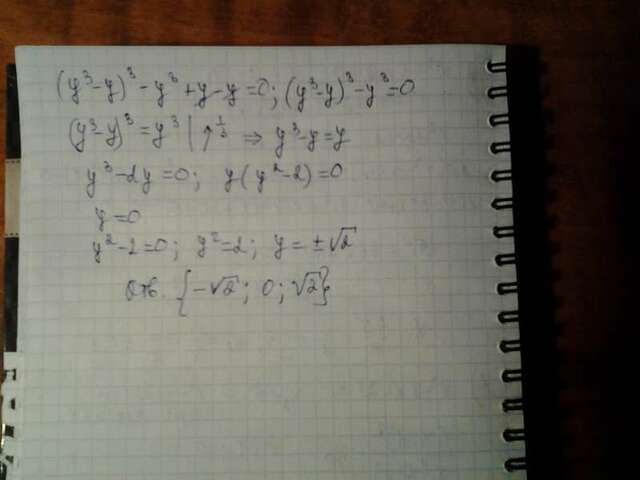 (y³-y)³-y³+y-y=0; (y³-y)³-y³=0
(y³-y)³=y³|↑^(1/3) ⇒ y³-y=y
y³-2y=0; y(y²-2)=0
y=0
y²-2=0; y²=2; y=±√2
Отв. {-√2; 0; √2}